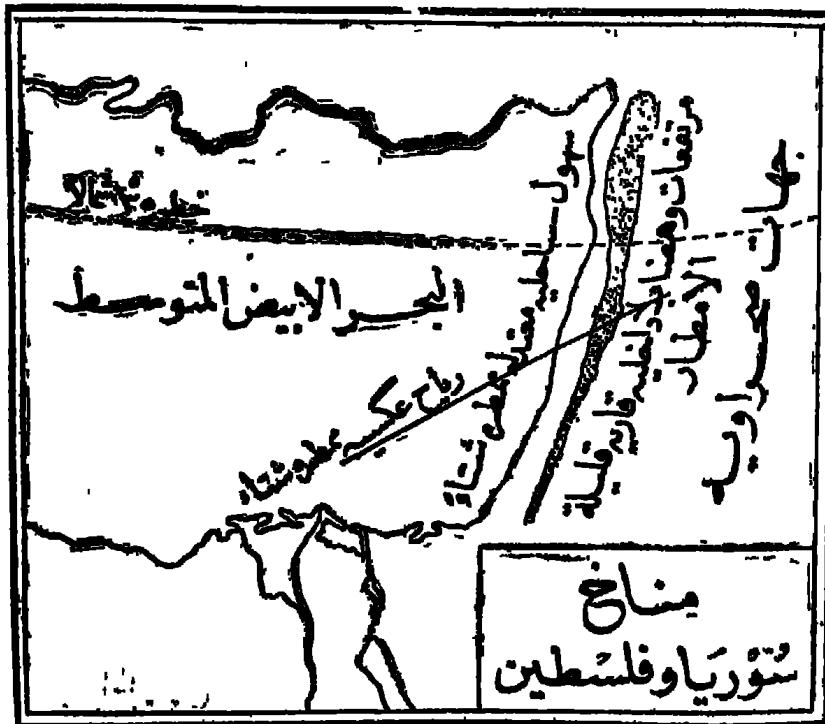 البحر الابيض المتوسط
رياح عكسية ممطرة شتاء
سهول ساحلية معتدلة ممطرة شتاء
مرتفعات وهضاب داخلية قارية قليلة
الامطار
جهات صحراوية
مناخ
سُوْريَا وفلسْطين